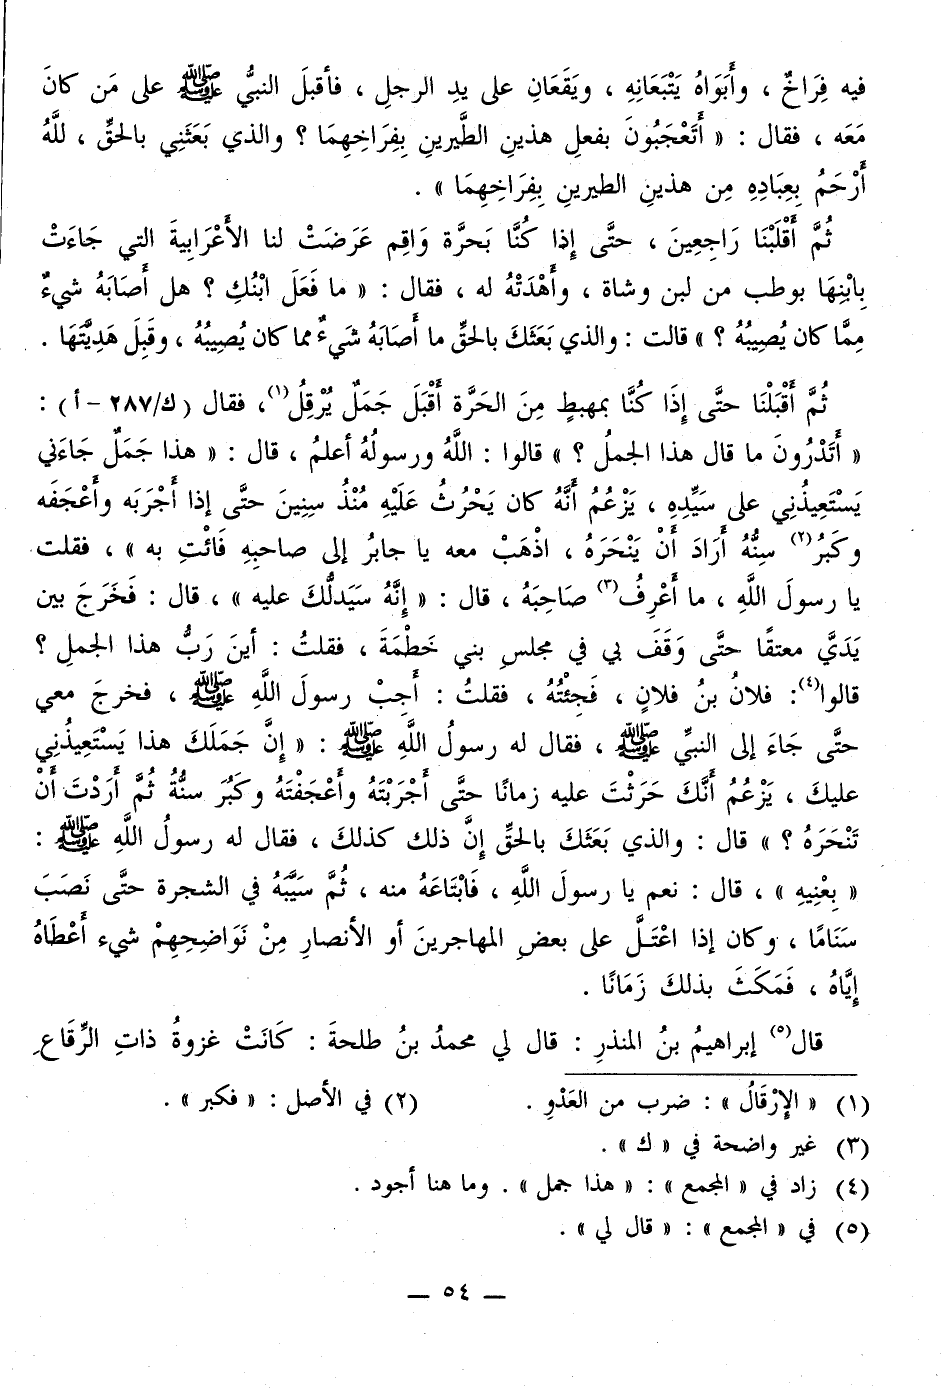 فيه فِرَاخٌ ، وأَبَوَاهُ يَتْبَعَانِهِ ، ويَقَعَانِ على يدِ الرجلِ ، فأقبلَ النبيُّ ﷺ على مَن كانَ
مَعَه ، فقال : « أَتَعْجَبُونَ بفعلِ هذينِ الطَّيرينِ بِفِرَاخِهِمَا ؟ والذي بَعَثَنِي بالحقِّ ، للَّهُ
أَرْحَمُ بِعِبَادِهِ مِن هذينِ الطيرينِ بِفِرَاخِهِمَا » .
ثُمَّ أَقْلَبْنَا رَاجِعِينَ ، حتَّى إِذا كُنَّا بَحرَّة وَاقِم عَرَضَتْ لنا الأَعْرَابِيةَ التي جَاءَتْ
بِابْنِهَا بوطب من لبن وشاة ، وأَهْدَتْهُ له ، فقال : « ما فَعَلَ ابْنُكِ ؟ هل أَصَابَهُ شيءٌ
مِمَّا كان يُصِيبُهُ ؟ » قالت : والذي بَعَثَكَ بالحقِّ ما أَصَابَهُ شَيءٌ مما كان يُصِيبُهُ ، وقَبِلَ هَدِيَّتَهَا .
ثُمَّ أَقْبَلْنَا حتَّى إِذَا كُنَّا بمهبطٍ مِنَ الحَرَّة أَقْبَلَ جَمَلٌ يُرْقِلُ(١)، فقال (ك/٢٨٧ - أ) :
« أَتَدْرُونَ ما قال هذا الجملُ ؟ » قالوا : اللَّهُ ورسولُهُ أعلمُ ، قال : « هذا جَمَلٌ جَاءَني
يَسْتَعِيذُنِي على سَيِّدِهِ ، يَزْعُمُ أَنَّهُ كان يَحْرُثُ عَلَيْهِ مُنْذُ سِنِينَ حتَّى إذا أَجْرَبَه وأَعْجَفَه
وكَبرُ(٢) سِنُّهُ أَرَادَ أَنْ يَنْحَرَهُ ، اذْهَبْ معه يا جابرُ إلى صاحبِهِ فَائْتِ به » ، فقلت
يا رسولَ اللَّهِ ، ما أَعْرِفُ(٣) صَاحِبَهُ ، قال : « إِنَّهُ سَيَدلُّكَ عليه » ، قال : فَخَرَجَ بين
يَدَيَّ معتقًا حتَّى وَقَفَ بي في مجلسِ بني خَطْمَةَ ، فقلتُ : أينَ رَبُّ هذا الجملِ ؟
قالوا(٤): فلانُ بنُ فلانٍ ، فَجِئْتُهُ ، فقلتُ : أَجِبْ رسولَ اللَّهِ ﷺ ، فخرجَ معي
حتَّى جَاءَ إلى النبيِّ ﷺ ، فقال له رسولُ اللَّهِ ﷺ : « إِنَّ جَمَلَكَ هذا يَسْتَعِيذُنِي
عليكَ ، يَزْعُمُ أَنَّكَ حَرَثْتَ عليه زمانًا حتَّى أَجْرَبْتَهُ وأَعْجَفْتَهُ وكَبُرَ سنُّهُ ثُمَّ أَرَدْتَ أَنْ
تَنْحَرَهُ ؟ » قال : والذي بَعَثَكَ بالحقِّ إِنَّ ذلك كذلكَ ، فقال له رسولُ اللَّهِ ﷺ :
« بِعْنِيهِ » ، قال : نعم يا رسولَ اللَّهِ ، فَابْتَاعَهُ منه ، ثُمَّ سَيَّبَهُ في الشجرة حتَّى نَصَبَ
سَنَامًا ، وكان إذا اعْتَـلَّ على بعضِ المهاجرينَ أو الأنصارِ مِنْ نَوَاضِحِهِمْ شيء أَعْطَاهُ
إِيَّاهُ ، فَمَكَثَ بذلكَ زَمَانًا .
قال(٥) إبراهيمُ بنُ المنذرِ : قال لي محمدُ بنُ طلحةَ : كَانَتْ غزوةُ ذاتِ الرِّقَاعِ
(١) « الإِرْقَالُ » : ضرب من العَدْوِ . (٢) في الأصل : « فكبر » .
(٣) غير واضحة في « ك » .
(٤) زاد في « المجمع » : « هذا جمل » . وما هنا أجود .
(٥) في « المجمع » : « قال لي » .
— ٥٤ —